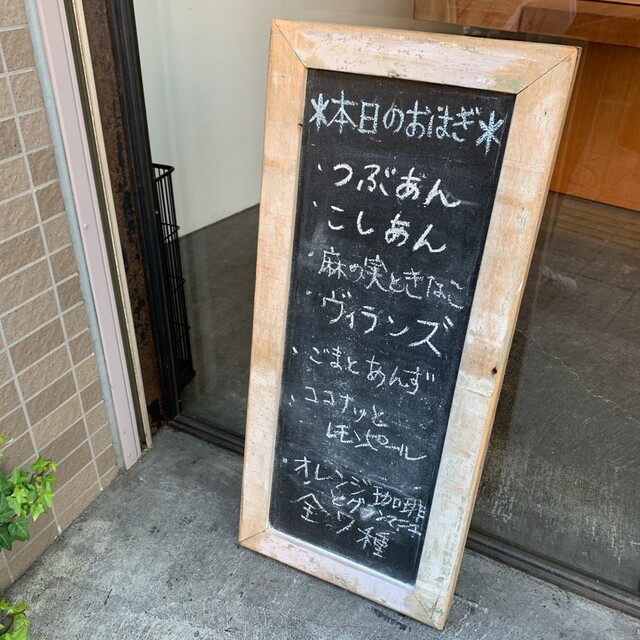 *本日のおはぎ*
・つぶあん
・こしあん
・麻の実ときなこ
・ヴィランズ
・ごまとあんず
・ココナッツと
レモンピール
・オレンジ珈琲
とグランマニエ
全7種